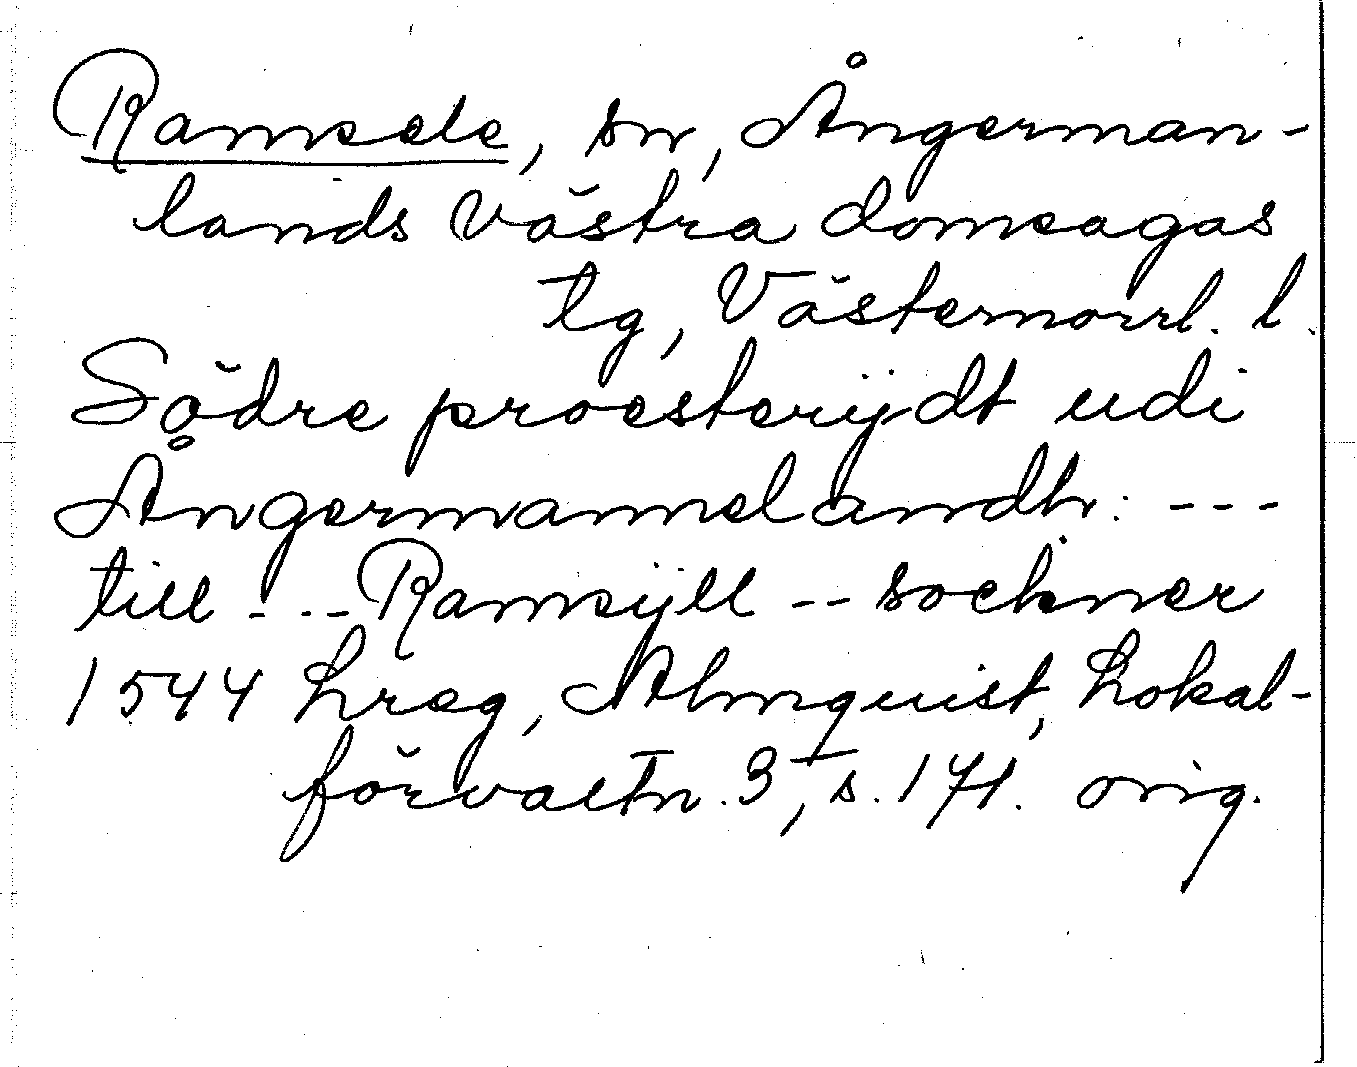 Ramsele, sn, Ångerman-
lands västra domsagas
tg, Västernorrl. l.
Södre proesterijdt udi
Ångermannelandh: ---
till - -- Ramsijll -- sockner
1544 Lreg, Almquist, Lokal-
förvaltn. 3, s. 171. orig.